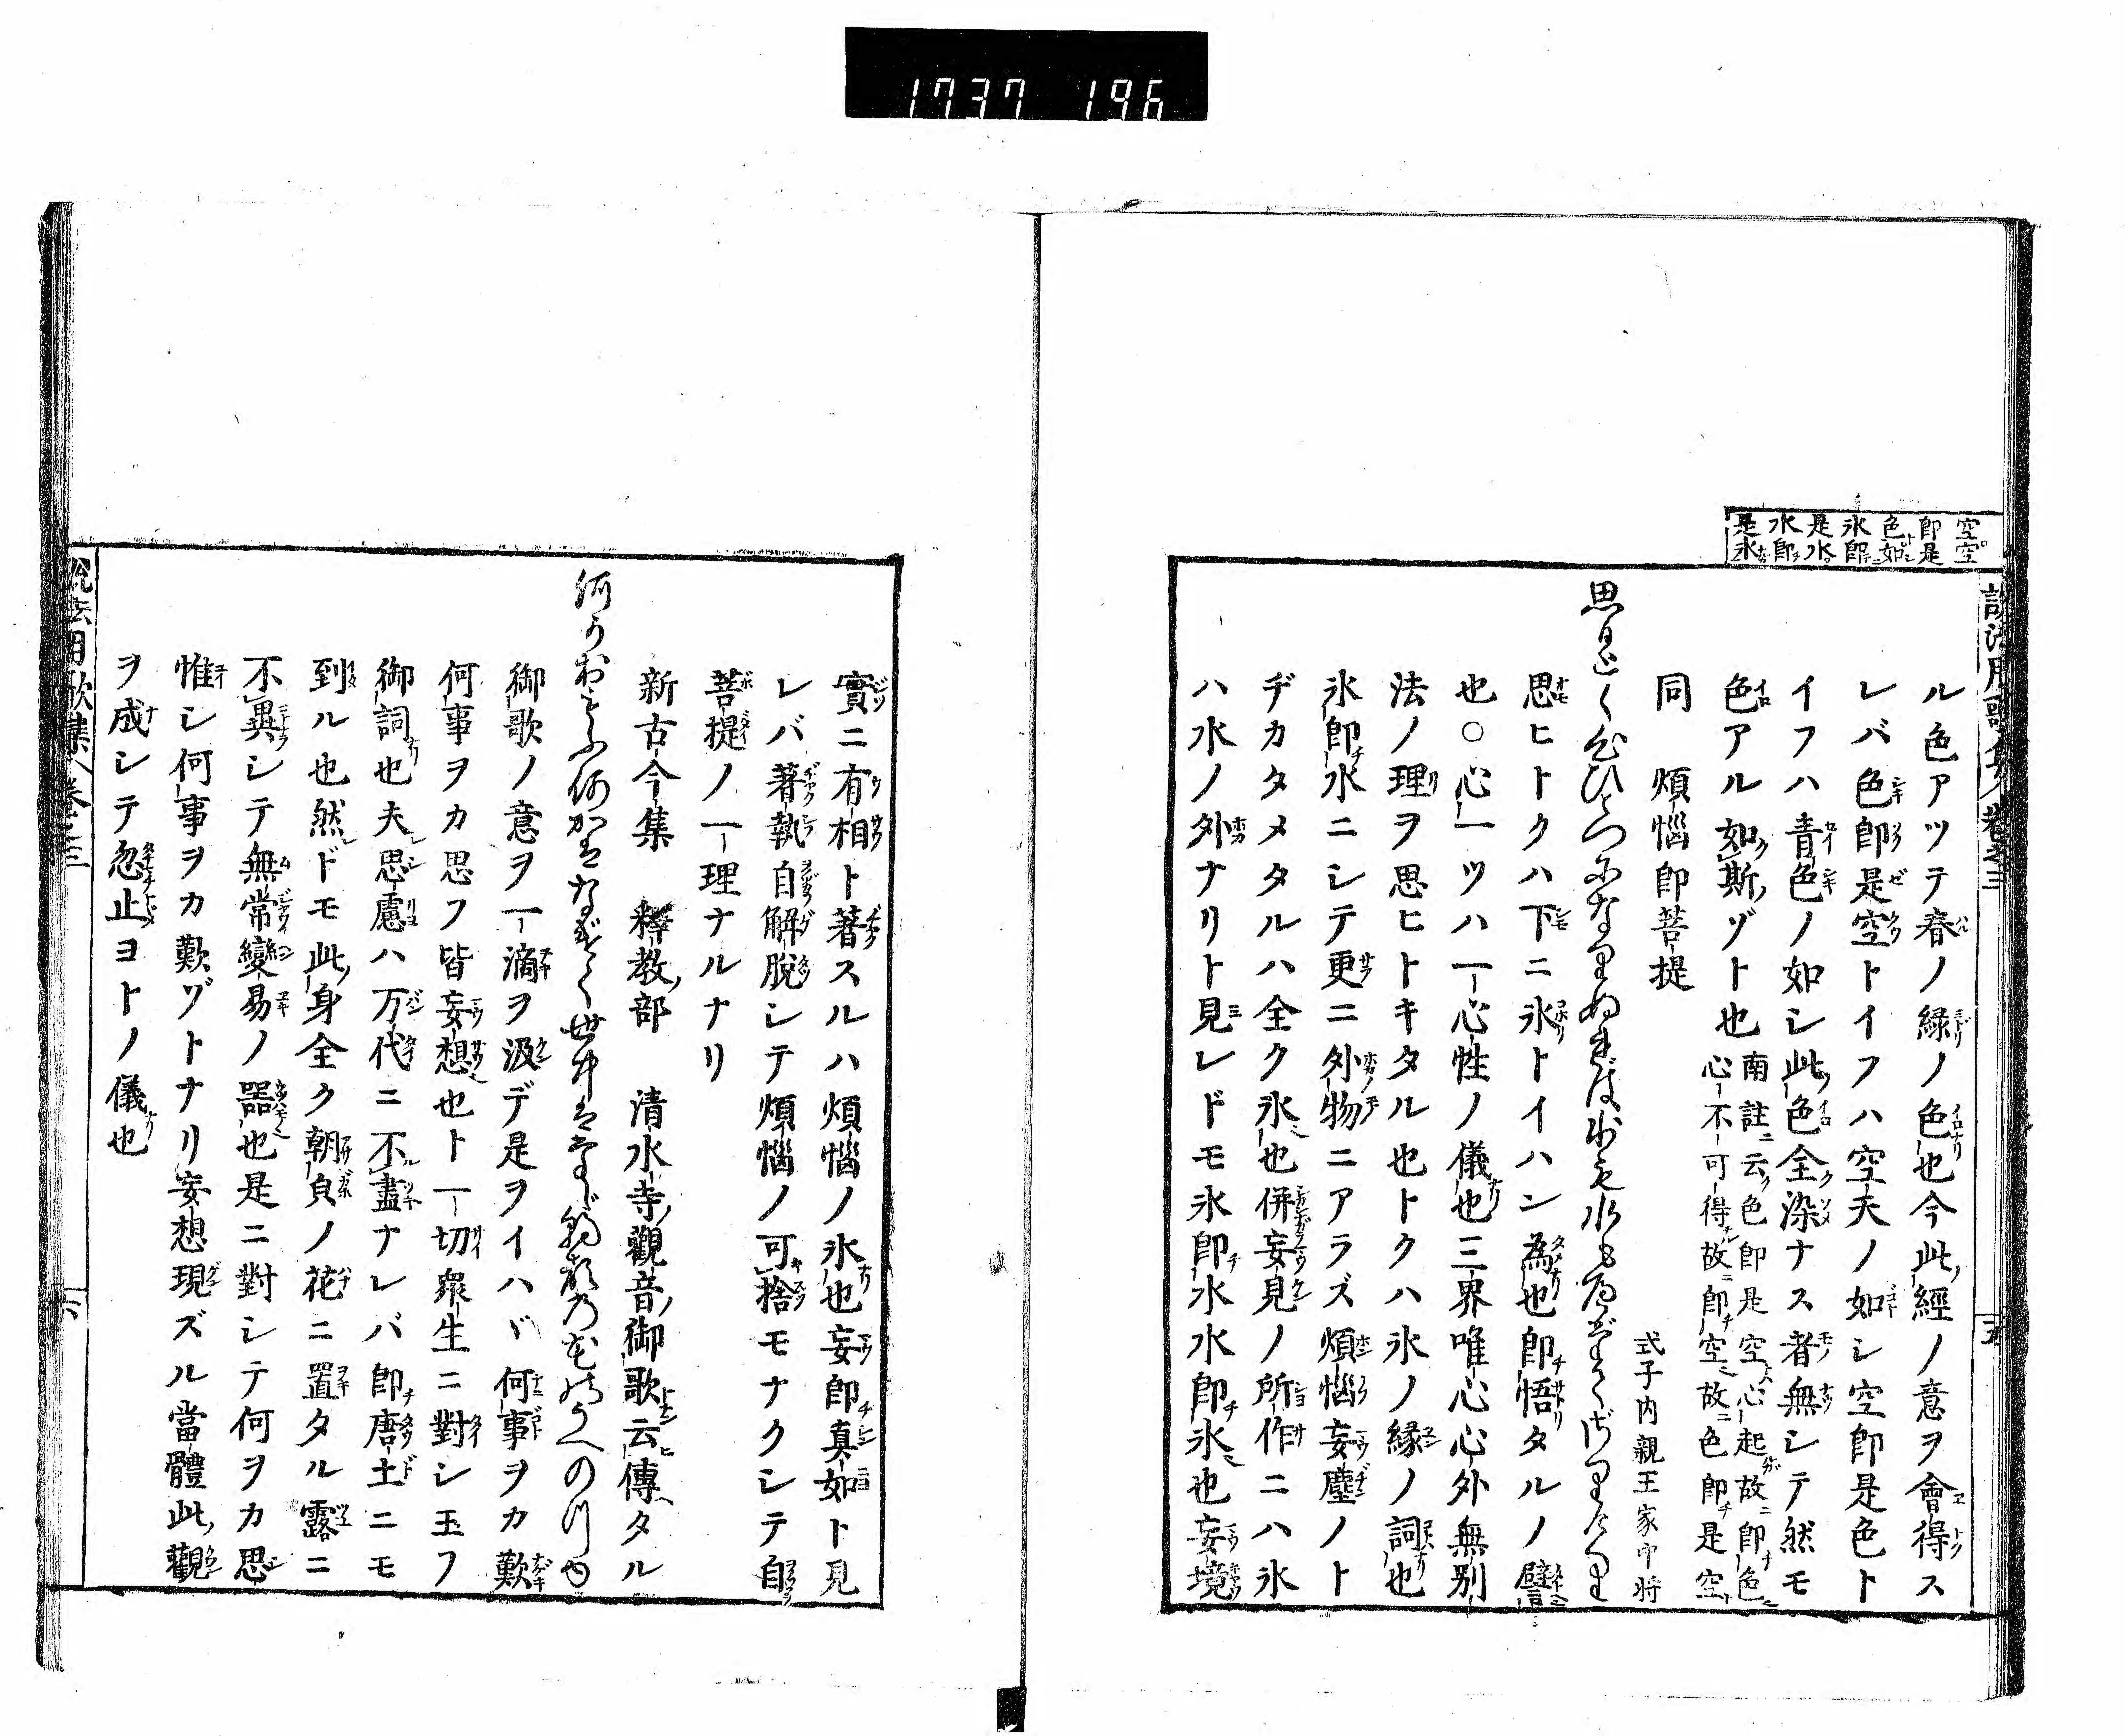 1737 196
空空
即是
色如
氷即
是水
水即
是氷
ル色アツテ春ノ緑ノ色也今此經ノ意ヲ會得ス
レバ色即是空トイフハ空夫ノ如シ空即是色ト
イフハ青色ノ如シ此色全染ナス者無シテ然モ
色アル如斯ゾト也
南註ニ云ク色即是空心起故ニ即チ色
心不可得故ニ即チ空故ニ色即チ是空
同 煩惱即菩提
式子内親王家中将
思ひとく心ひとつになりぬれば氷も水もへだてざりけり
思ヒトクハ下ニ氷トイハン為也即悟タルノ譬
也○心一ツハ一心性ノ儀也三界唯心心外無別
法ノ理ヲ思ヒトキタル也トクハ氷ノ縁ノ詞也
氷即チ水ニシテ更ニ外物ニアラズ煩惱妄塵ノト
ヂカタメタルハ全ク氷也併妄見ノ所作ニハ氷
ハ水ノ外ナリト見レドモ氷即チ水水即チ氷也妄境
實ニ有相ト著スルハ煩惱ノ氷也妄即真如ト見
レバ著執自解脱シテ煩惱ノ可捨モナクシテ自
菩提ノ一理ナルナリ
新古今集 釋教部 清水寺觀音御歌云傳タル
何かおもふ何かはなげく世中はたゞ朝顔の花のうへの
御歌ノ意ヲ一滴ヲ汲デ是ヲイハヾ何事ヲカ歎
何事ヲカ思フ皆妄想也ト一切衆生ニ對シ玉フ
御詞也夫思慮ハ万代ニ不盡ナレバ即チ唐土ニモ
到ル也然ドモ此身全ク朝皃ノ花ニ置タル露ニ
不異シテ無常變易ノ器也是ニ對シテ何ヲカ思
惟シ何事ヲカ歎ゾトナリ妄想現ズル當體此觀
ヲ成シテ忽止ヨトノ儀也